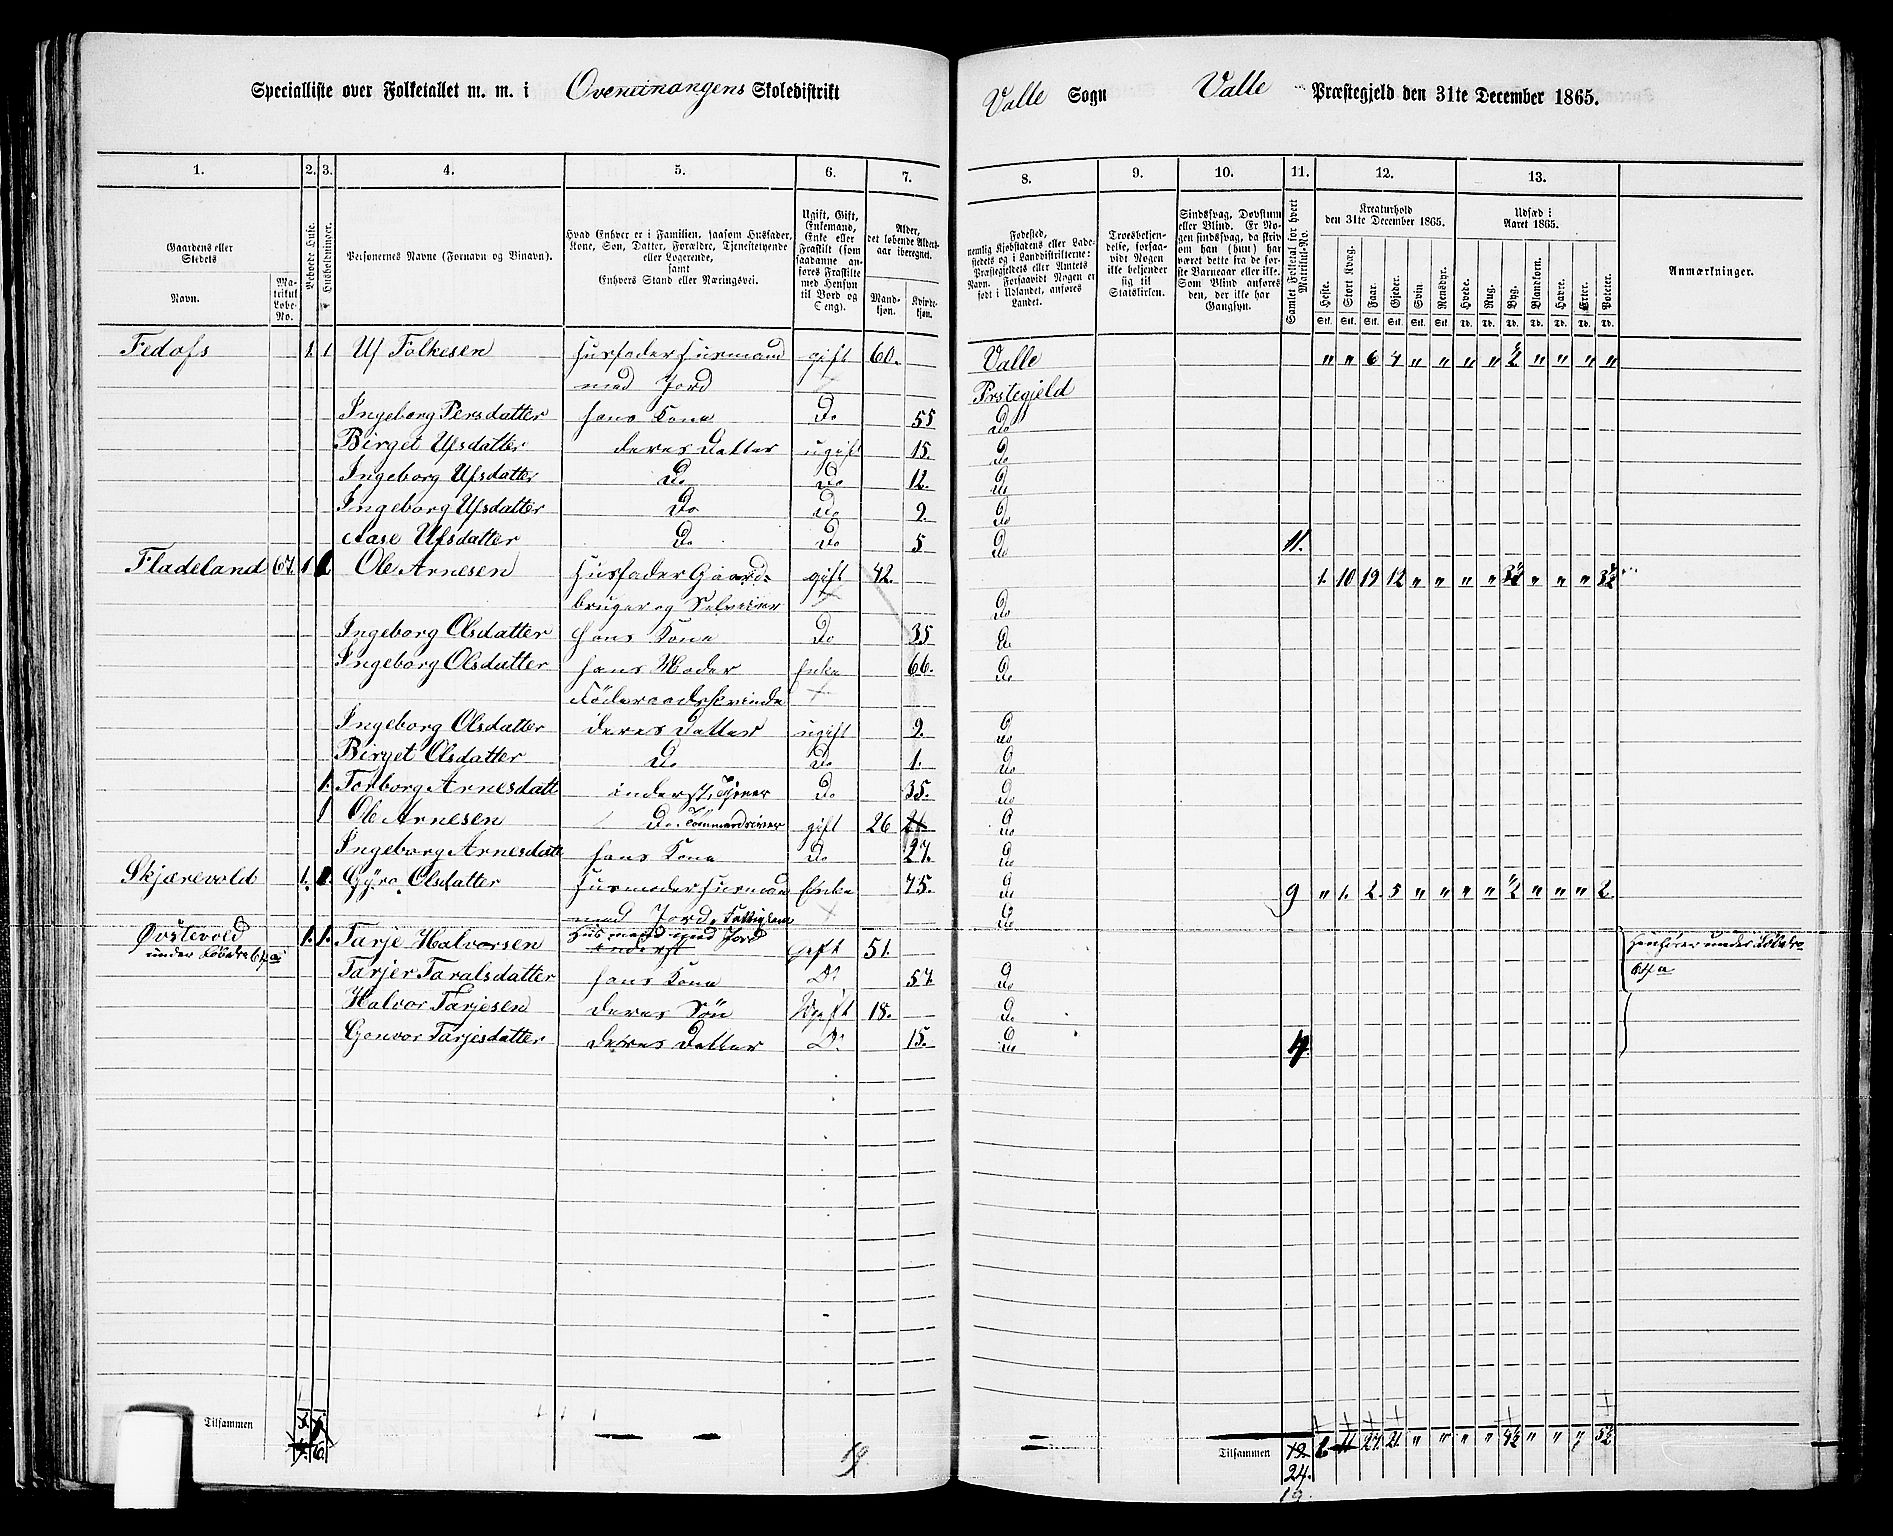 Specialliste over Folketallet m. m. i Skoledistrikt
Valle Sogn Valle Præstegjeld den 31te December 1865.
1. 2. 3. 4. 5. 6. 7. 8. 9. 10. 11. 12. 13.
Gaardens eller Stedets
Navn.
Matrikul Løbe-No.
Beboede Huse.
Husholdninger.
Personernes Navne (Fornavn og Tilnavn).
Hvad Enhver er i Familien, saasom Husfader, Kone, Søn, Datter, Forældre, Tjenestetyende eller Logerende, samt Enhvers Stand eller Næringsvei.
Ugift, Gift, Enkemand, Enke eller Fraskilt (som saadanne anføres Fraskilte med Hensyn til Bord og Seng).
Alder, det løbende Alders-aar iberegnet.
Mand-kjøn. Kvinde-kjøn.
Fødested, nemlig Kjøbstadens eller Ladestedets og i Landdistrikterne: Præstegjeldets eller Amtets Navn. Forsaavidt Nogen er født i Udlandet, anføres Landet.
Troesbekjendelse, forsaavidt Nogen ikke bekjender sig til Statskirken.
Sindssvag, Døvstum eller Blind. Er Nogen sindssvag, da skrives om han (hun) har været dette fra de første Barneaar eller ikke. Som Blind anføres den, der ikke har Gangsyn.
Samlet Folketal for hvert Matrikul-No.
Kreaturhold den 31te December 1865.
Heste. Stort Kvæg. Faar. Gjeder. Svin. Rensdyr.
Stk. Stk. Stk. Stk. Stk. Stk.
Udsæd i Aaret 1865.
Hvede. Rug. Byg. Blandkorn. Havre. Erter. Poteter.
Td. Td. Td. Td. Td. Td. Td.
Anmærkninger.
Fedofs 1. 1 Uf Folkesen Husfader Husmand gift 60. Valle " " 6 4 " " " " ½ " " " "
med Jord Prstegjeld
Ingeborg Persdatter hans Kone Do 55 Do
Birget Ufsdatter deres Datter ugift 15. Do
Ingeborg Ufsdatter Do Do 12. Do
Ingeborg Ufsdatter Do Do 9. Do
Aase Ufsdatter Do Do 5 Do 11.
Fladeland 67. 1 Ole Arnesen Husfader Gaard- gift 42. 1. 10 19 12 " " " " 3½ " " " 3½
bruger og Selveier Do
Ingeborg Olsdatter hans Kone Do 35 Do
Ingeborg Olsdatter hans Moder Enke 66. Do
Föderaadskvinde
Ingeborg Olsdatter deres Datter ugift 9. Do
Birget Olsdatter Do Do 1. Do
1. Torborg Arnesdatt inderst, Do 35. Do
1 Ole Arnesen Do. gift 26 Do
Ingeborg Arnesdatt hans Kone Do 27. Do
Skjærevold 1. Gyro Olsdatter Husmoder Husmand Enke 75. Do 9 " 1. 2. 5 " " " " ½ " " " 2.
med Jord, Do
Øvstevold 1. 1. Tarje Halvorsen Husmand med Jord gift 51. Henhører under Löbetro
under Löbetro 64 a inderst 64 a
Tarjer Taralsdatter hans Kone Do 57 Do
Halvor Tarjesen deres Sön Ugift 18. Do
Gonvor Tarjesdatter deres Datter Do 15. Do 4
Tilsammen 6. 19 Tilsammen 19 2. 11 27. 21. " " " " 4½ " " " 5½
24.
19.